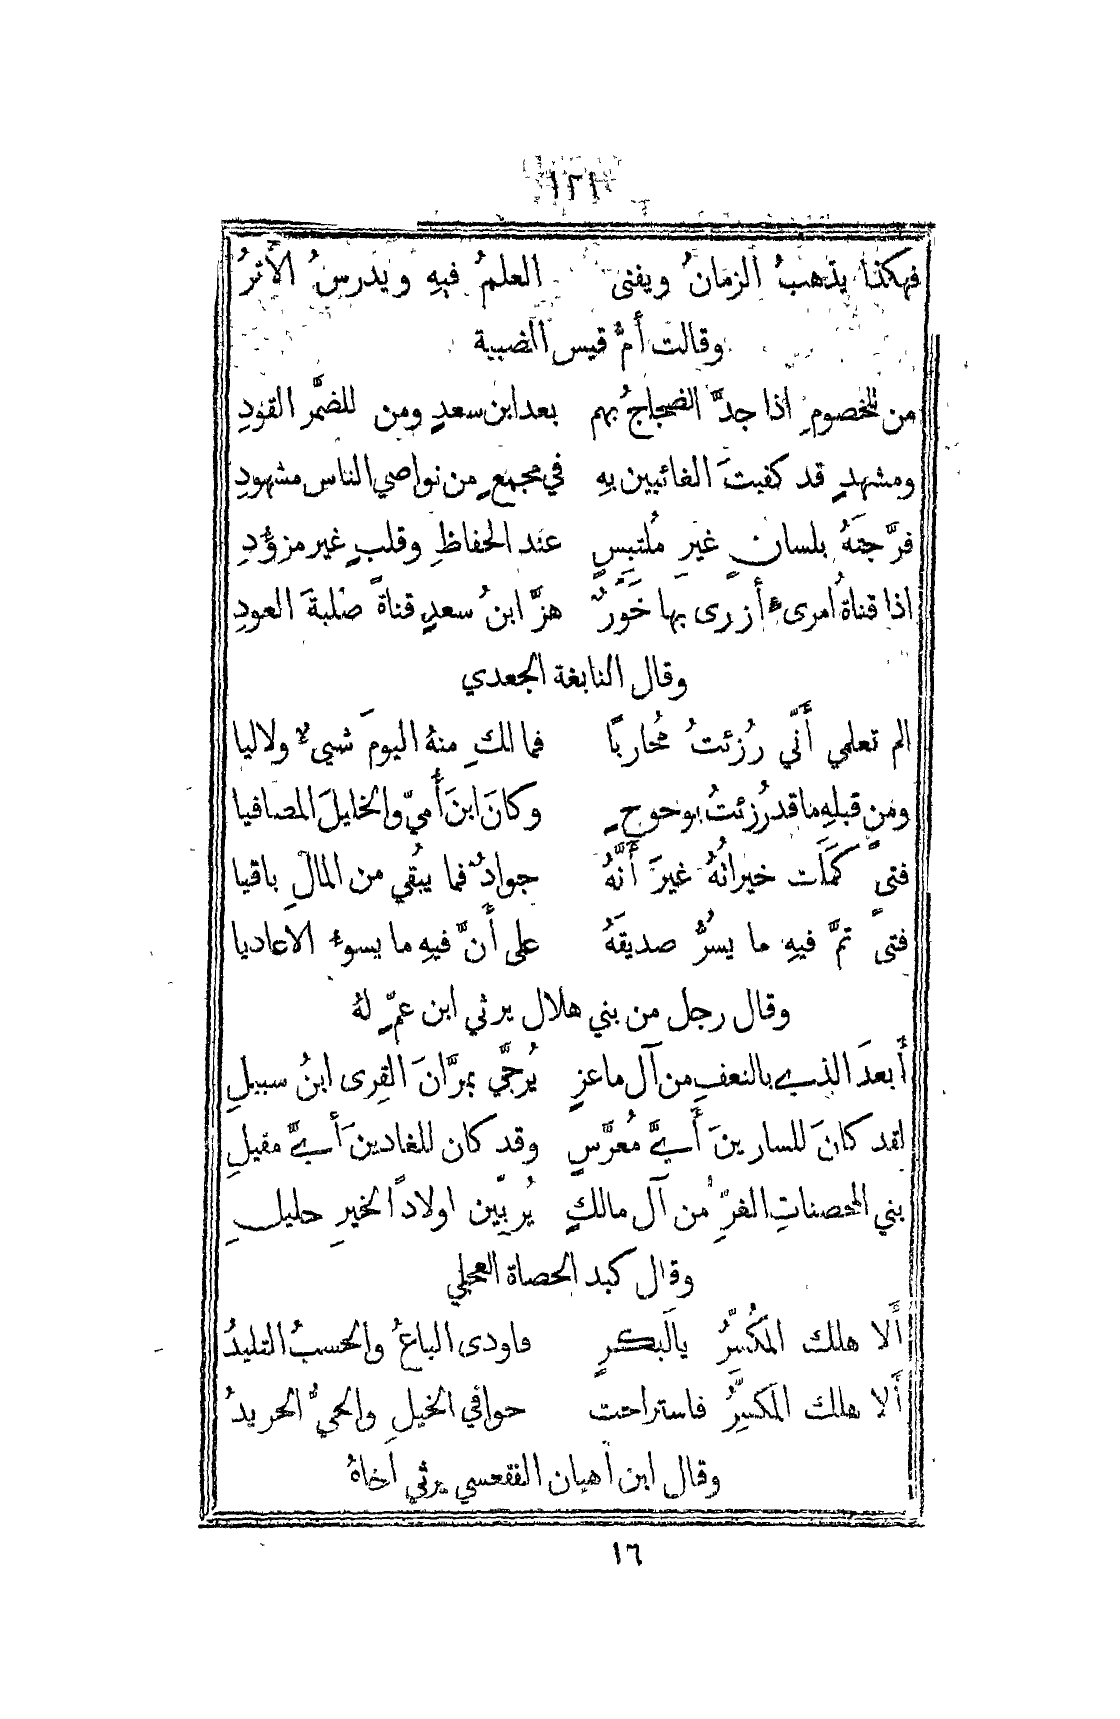 ١٢١
فهكذا يذهبُ الزمانُ ويفنى العلمُ فيهِ ويدرسُ الأَثرُ
وقالت أمُّ قيس الضبية
من للخصومِ اذا جدَّ الضجاجُ بهم بعد ابن سعدٍ ومن للضمَّر القودِ
ومشهدٍ قد كفيتَ الغائبين بهِ في مجمعٍ من نواصي الناس مشهودِ
فرَّجتَهُ بلسانٍ غيرِ مُلتبسٍ عند الحفاظِ وقلبٍ غير مزؤُدِ
اذا قناةُ امرىءٍ أزرى بها خَوَرٌ هزَّ ابنُ سعدٍ قناةً صُلبةَ العودِ
وقال النابغة الجعدي
الم تعلمي أَنّي رُزئتُ مُحاربًا فما لكِ منهُ اليومَ شيءٌ ولا ليا
ومن قبلهِ ما قد رُزئتُ بوحوحٍ وكانَ ابنَ أُميّ والخليلَ المصافيا
فتىً كَمَلَت خيراتُهُ غيرَ أَنَّهُ جوادٌ فما يُبقي من المالِ باقيا
فتىً تمَّ فيهِ ما يسرُّ صديقَهُ على أَنَّ فيهِ ما يسوءُ الاعاديا
وقال رجل من بني هلال يرثي ابن عمٍّ لهُ
أَبعدَ الذي بالنعفِ من آل ماعزٍ يُرجَّي بمرَّانَ القِرى ابنُ سبيلِ
لقد كانَ للسارينَ أَيَّ مُعرَّسٍ وقد كان للغادينَ أَيَّ مقيلِ
بني المحصناتِ الغرِّ من آل مالكٍ يُربّين اولادًا لخيرِ حليلِ
وقال كبد الحصاة العجلي
أَلا هلك المكُسَّرُ يالَبكرٍ فاودى الباعُ والحسبُ التليدُ
أَلا هلك المكَسَّرُ فاستراحت حوافي الخيلِ والحيُّ الحريدُ
وقال ابن أهبان الفقعسي يرثي اخاهُ
١٦